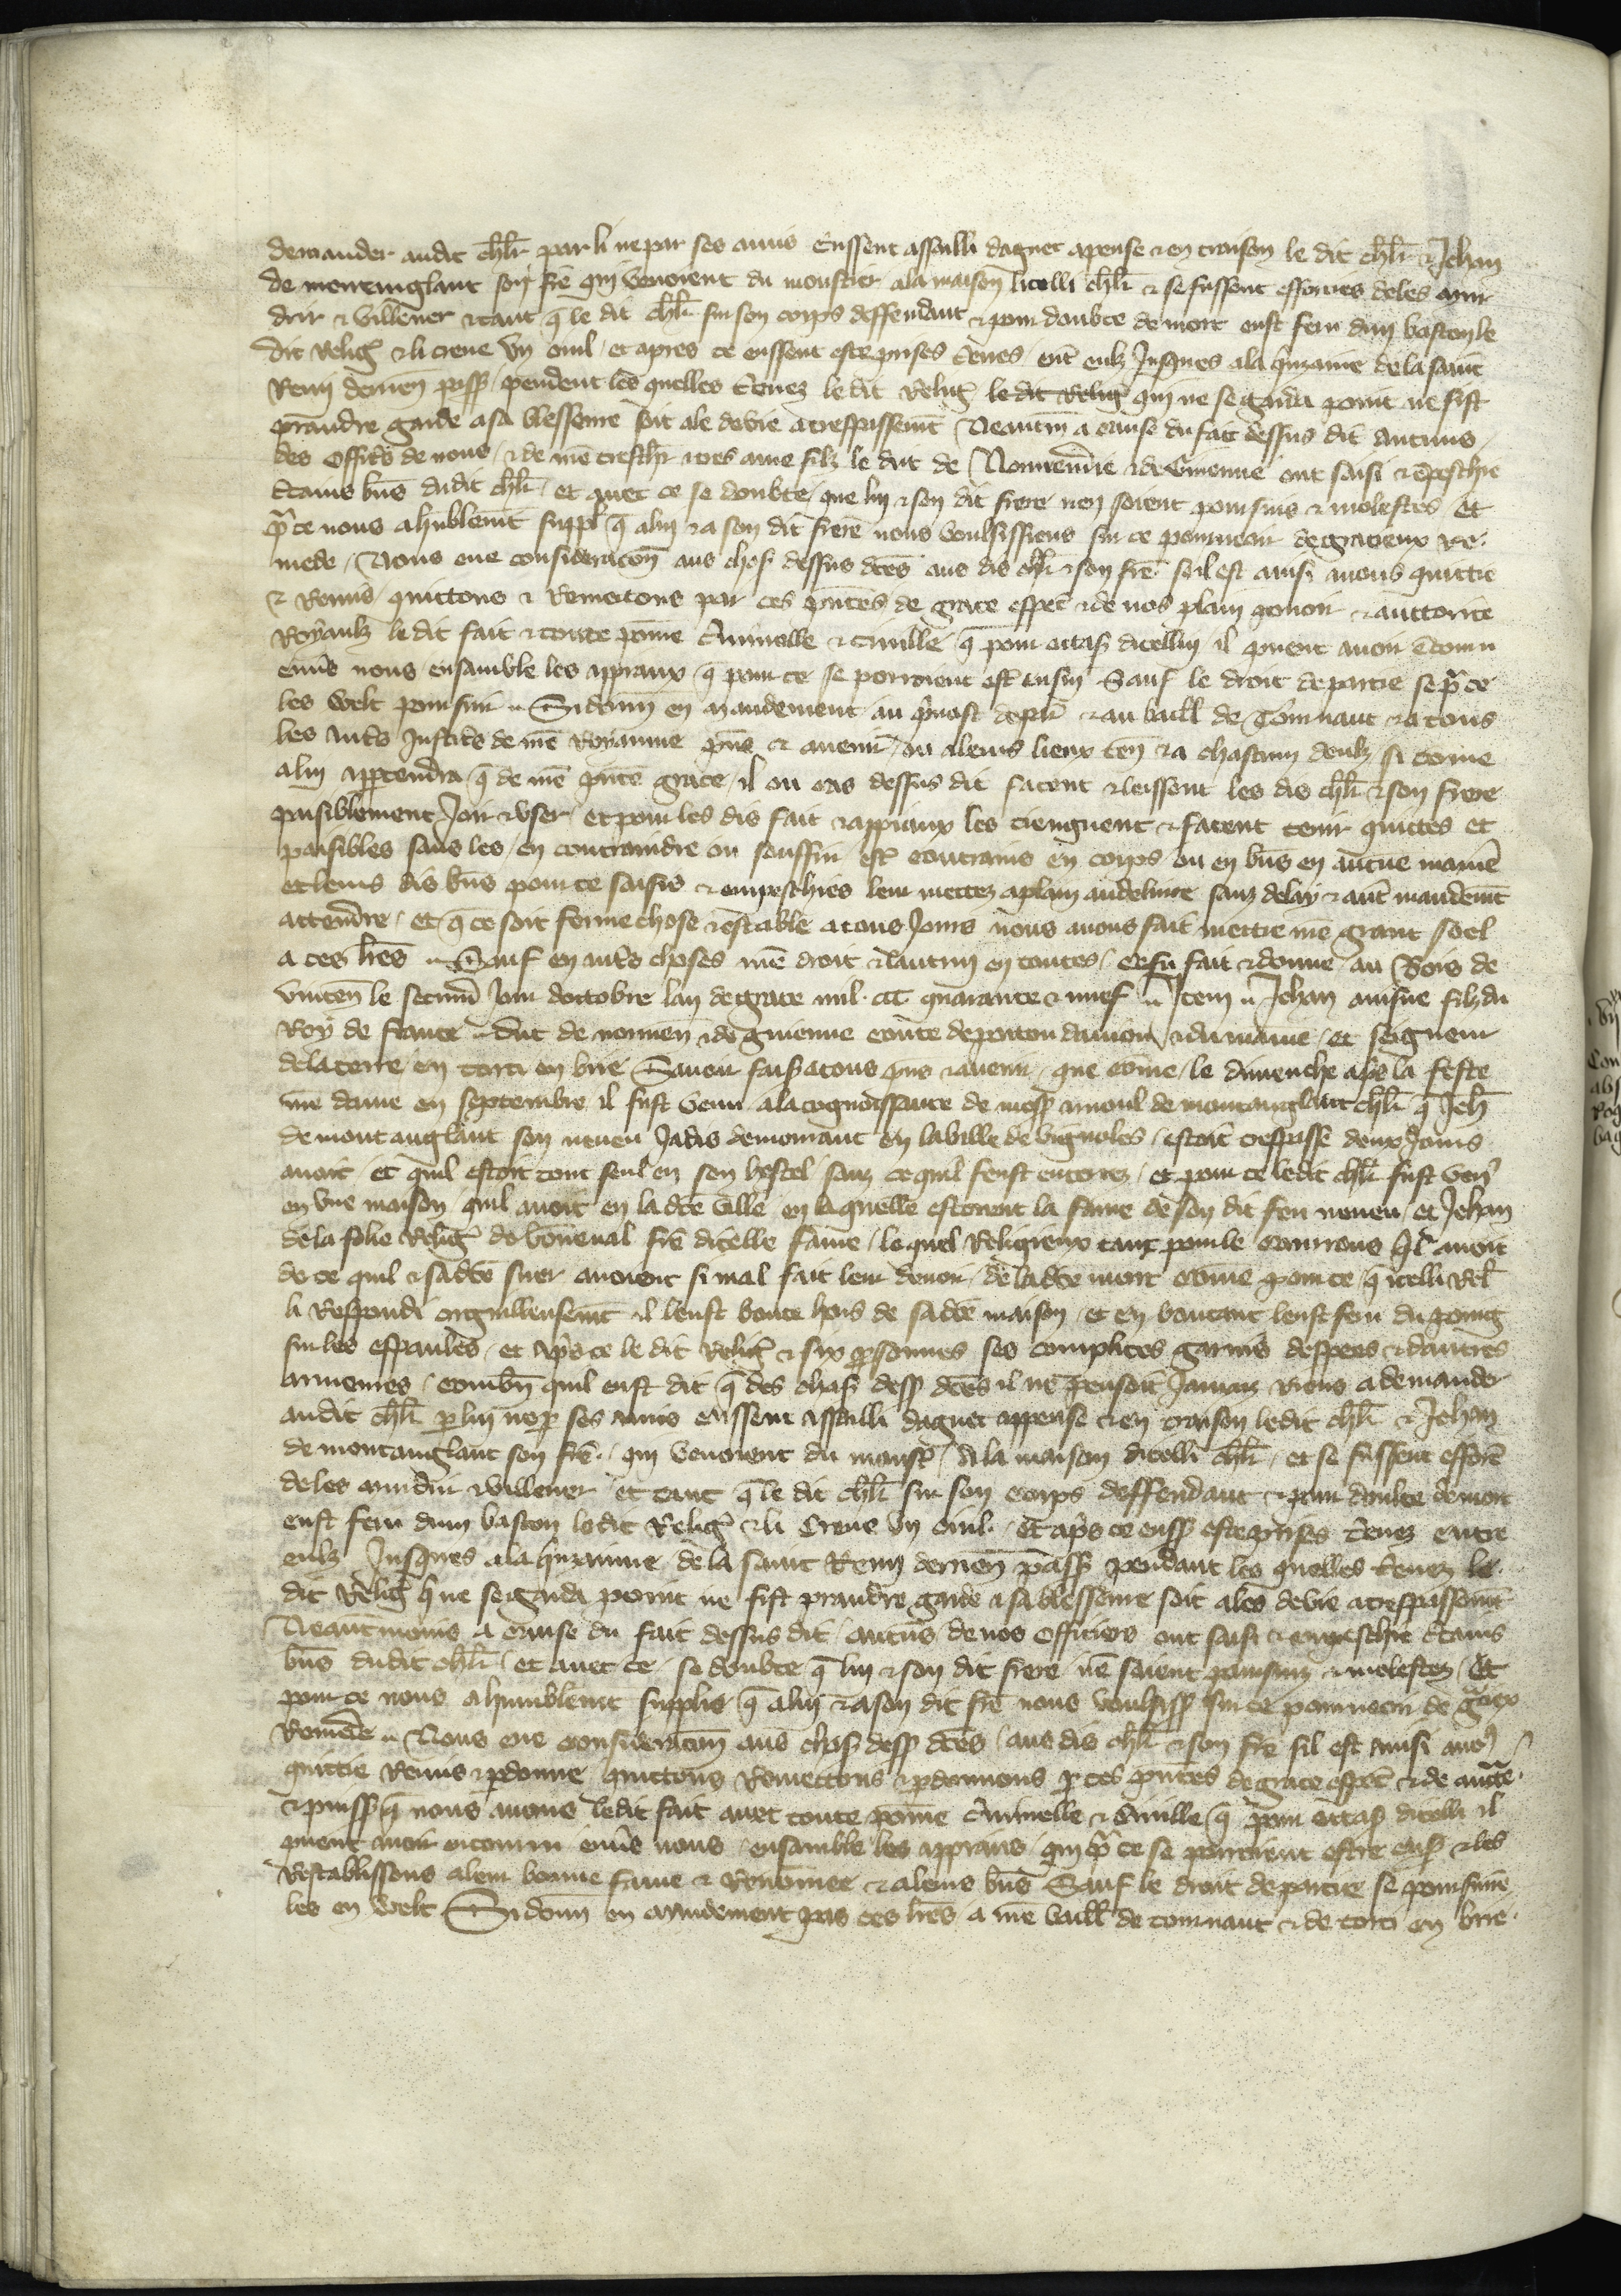 demander audit chlr par li ne par ses amis eussent assailli daguet apense & en traison le dit chlr & Jehan
de montanglaut son fre qui venoient du moustier a la maison dicelli chlr & se fussent efforcies de les mur
drir & villener & tant q le dit chlr sur son corps deffendant & pour doubte de mort eust feru dun baston le
dit relig & li creve un oeil et apres ce eussent este prises treves ent eulz jusques a la quinzaine de la saint
Remi derren pass pendent les quelles trevez le dit relig le dit relig qui ne se garda point ne fist
prandre garde a sa blesseure soit ale de vie a trespassemt Neantm a cause du fait dessus dit aucuns
des offics de nous & de nre treschr & tres ame filz le duc de Normendie & de Guienne ont saisi & empeschie
ctains bns dudit chlr et avec ce se doubte que lui & son dit frere nen soient poursuis & molestes et
pr ce nous a hublemt suppl q a lui & a son dit frere nous voulsissiens sur ce pourveoir de gracieux re
mede Nous eue consideracon aus chos dessus dces aus dis chlr & son fre sil est ainsi avons quittie
& remis quittons & remectons par ces pntes de grace espec & de nos plain povoir & auttorite
royaulz le dit fait & toute poine criminelle & civille q pour occas dicellui il pueent avoir encouru
envers nous ensamble les appiaux q pour ce se porroient est ensui sauf le droit de partie se pr ce
les velt poursuir Si donn en mandement au prvost de par & au baill de Tournaut & a tous
les auts justics de nre royaume pns & avenir ou a leurs lieux ten & a chascun deulz si come
a lui appartendra q de nre pnte grace il ou cas dessus dit facent & leissent les dis chlr & son frere
paisiblement joir & user et pour les dis fait & appiaux les tiengnent & facent tenir quittes et
paisibles sans les en contraindre ou souffrir est contrains en corps ou en bns en aucune manie
et leurs dis bns pour ce saisis & empeschies leur mettez a plain au delivre sanz delay & aut mandemt
attendre et q ce soit ferme chose & estable a tous jours nous avons fait mettre nre grant seel
a ces lres Sauf en auts choses nre droit & lautrui en toutes Ce fu fait & donne au Bois de
vincen le secund jour doctobre lan de grace mil ccc quarante & nuef Item Jehan ainsne filz du
Roy de france duc de normen & de guienne conte de poitou danjou & du maine et seigneur
de la terre en torci en brie Savoir fais a tous pns & avenir que come le dimenche aps la feste
nre dame en septembre il fust venu a la cognoissance de mess arnoul de montanglaut chlr q Jeh
de montanglaut son neveu jadis demourant en la ville de vignoles estoit trespasse deux jours
avoit et quil estoit tout seul en son hostel sanz ce quil feust enterrez et pour ce le dit chlr fust ven
en une maison quil avoit en la dce ville en laquelle estoient la fame de son dit feu neveu et Jehan
de la folie relig de boneval fre dicelle fame le quel religieux tant pour le courrous ql avoit
de ce quil & sa dce suer avoient si mal fait leur devoir de la dce mort come pour ce q icelli rel
li respondi orguilleusemt il leust boute hors de sa dce maison et en boutant leust feru du poing
sur les espaules et aps ce le dit relig & six psonnes ses complices garnis despees & dautres
armeures combn quil eust dit q des chos dess dces il ne pensoit jamaiz riens a demander
audit chlr p lui ne p ses amis eussent assailli daguet appense & en traison ledit chlr & Jehan
de montanglaut son fre qui venoient du moust a la maison dicelli chlr et se fussent efforc
de les murdrir & villener et tant q le dit chlr sur son corps deffendant & pour doubte de mort
eust feru dun baston ledit relig & li creve un oeil et aps ce euss este prises trevez entre
eulz jusques a la quinzainne de la saint Remy derren pass pendant les quelles trevez le
dit relig q ne se garda point ne fist prandre garde a sa blesseure soit ales de vie a trespassemt
Neantmoins a cause du fait dessus dit aucuns de nos officiers ont saisi & empeschie ctains
bns dudit chlr et avec ce se doubte q lui & son dit frere ne soient poursuiz & molestez et
pour ce nous a humblemt supplie q a lui & a son dit fre nous voulsiss sur ce pourveoir de gciex
remede Nous eue consideracon aus chos dess dces aus dis chlr & son fre sil est ainsi avos
quittie remis & pdonne quittons remectons & pdonnons p ces pntes de grace espec & de aucte
& puiss q nous avons ledit fait avec toute poine criminelle & civille q pour occas dicelli il
pueent avoir encouru envs nous ensamble les appiaus qui pr ce se pourroient estre ens & les
restablissons a leur bonne fame & renommee & a leurs bns Sauf le droit de partie se poursuivre
les en velt Si donn en mandement par ces lres a nre baill de tournaut & de torci en brie